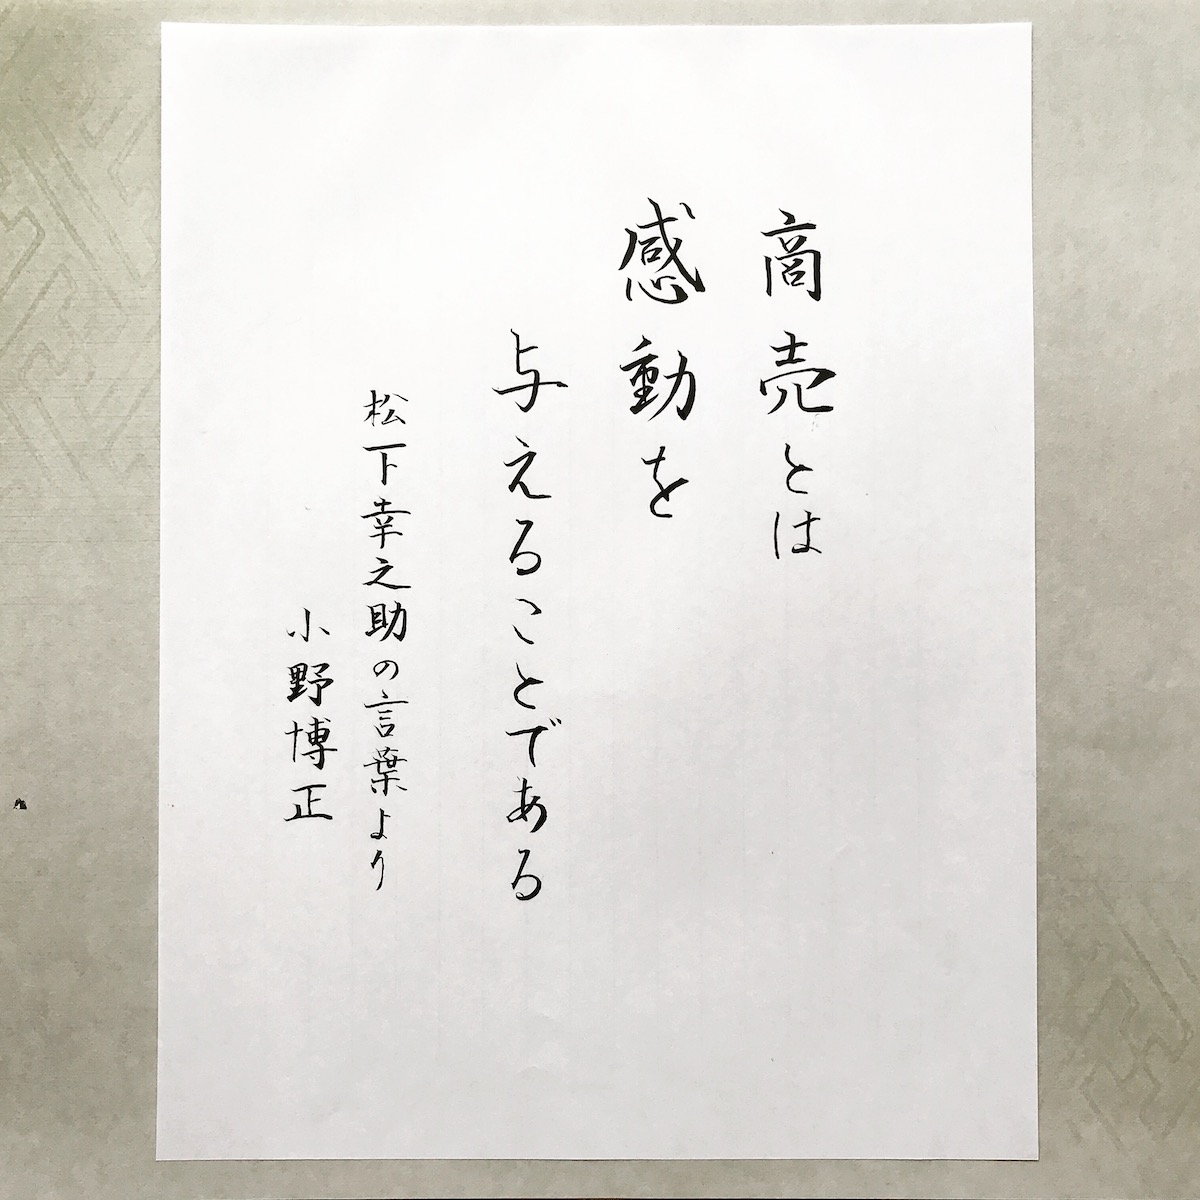 商売とは
感動を
与えることである
松下幸之助の言葉より
小野博正